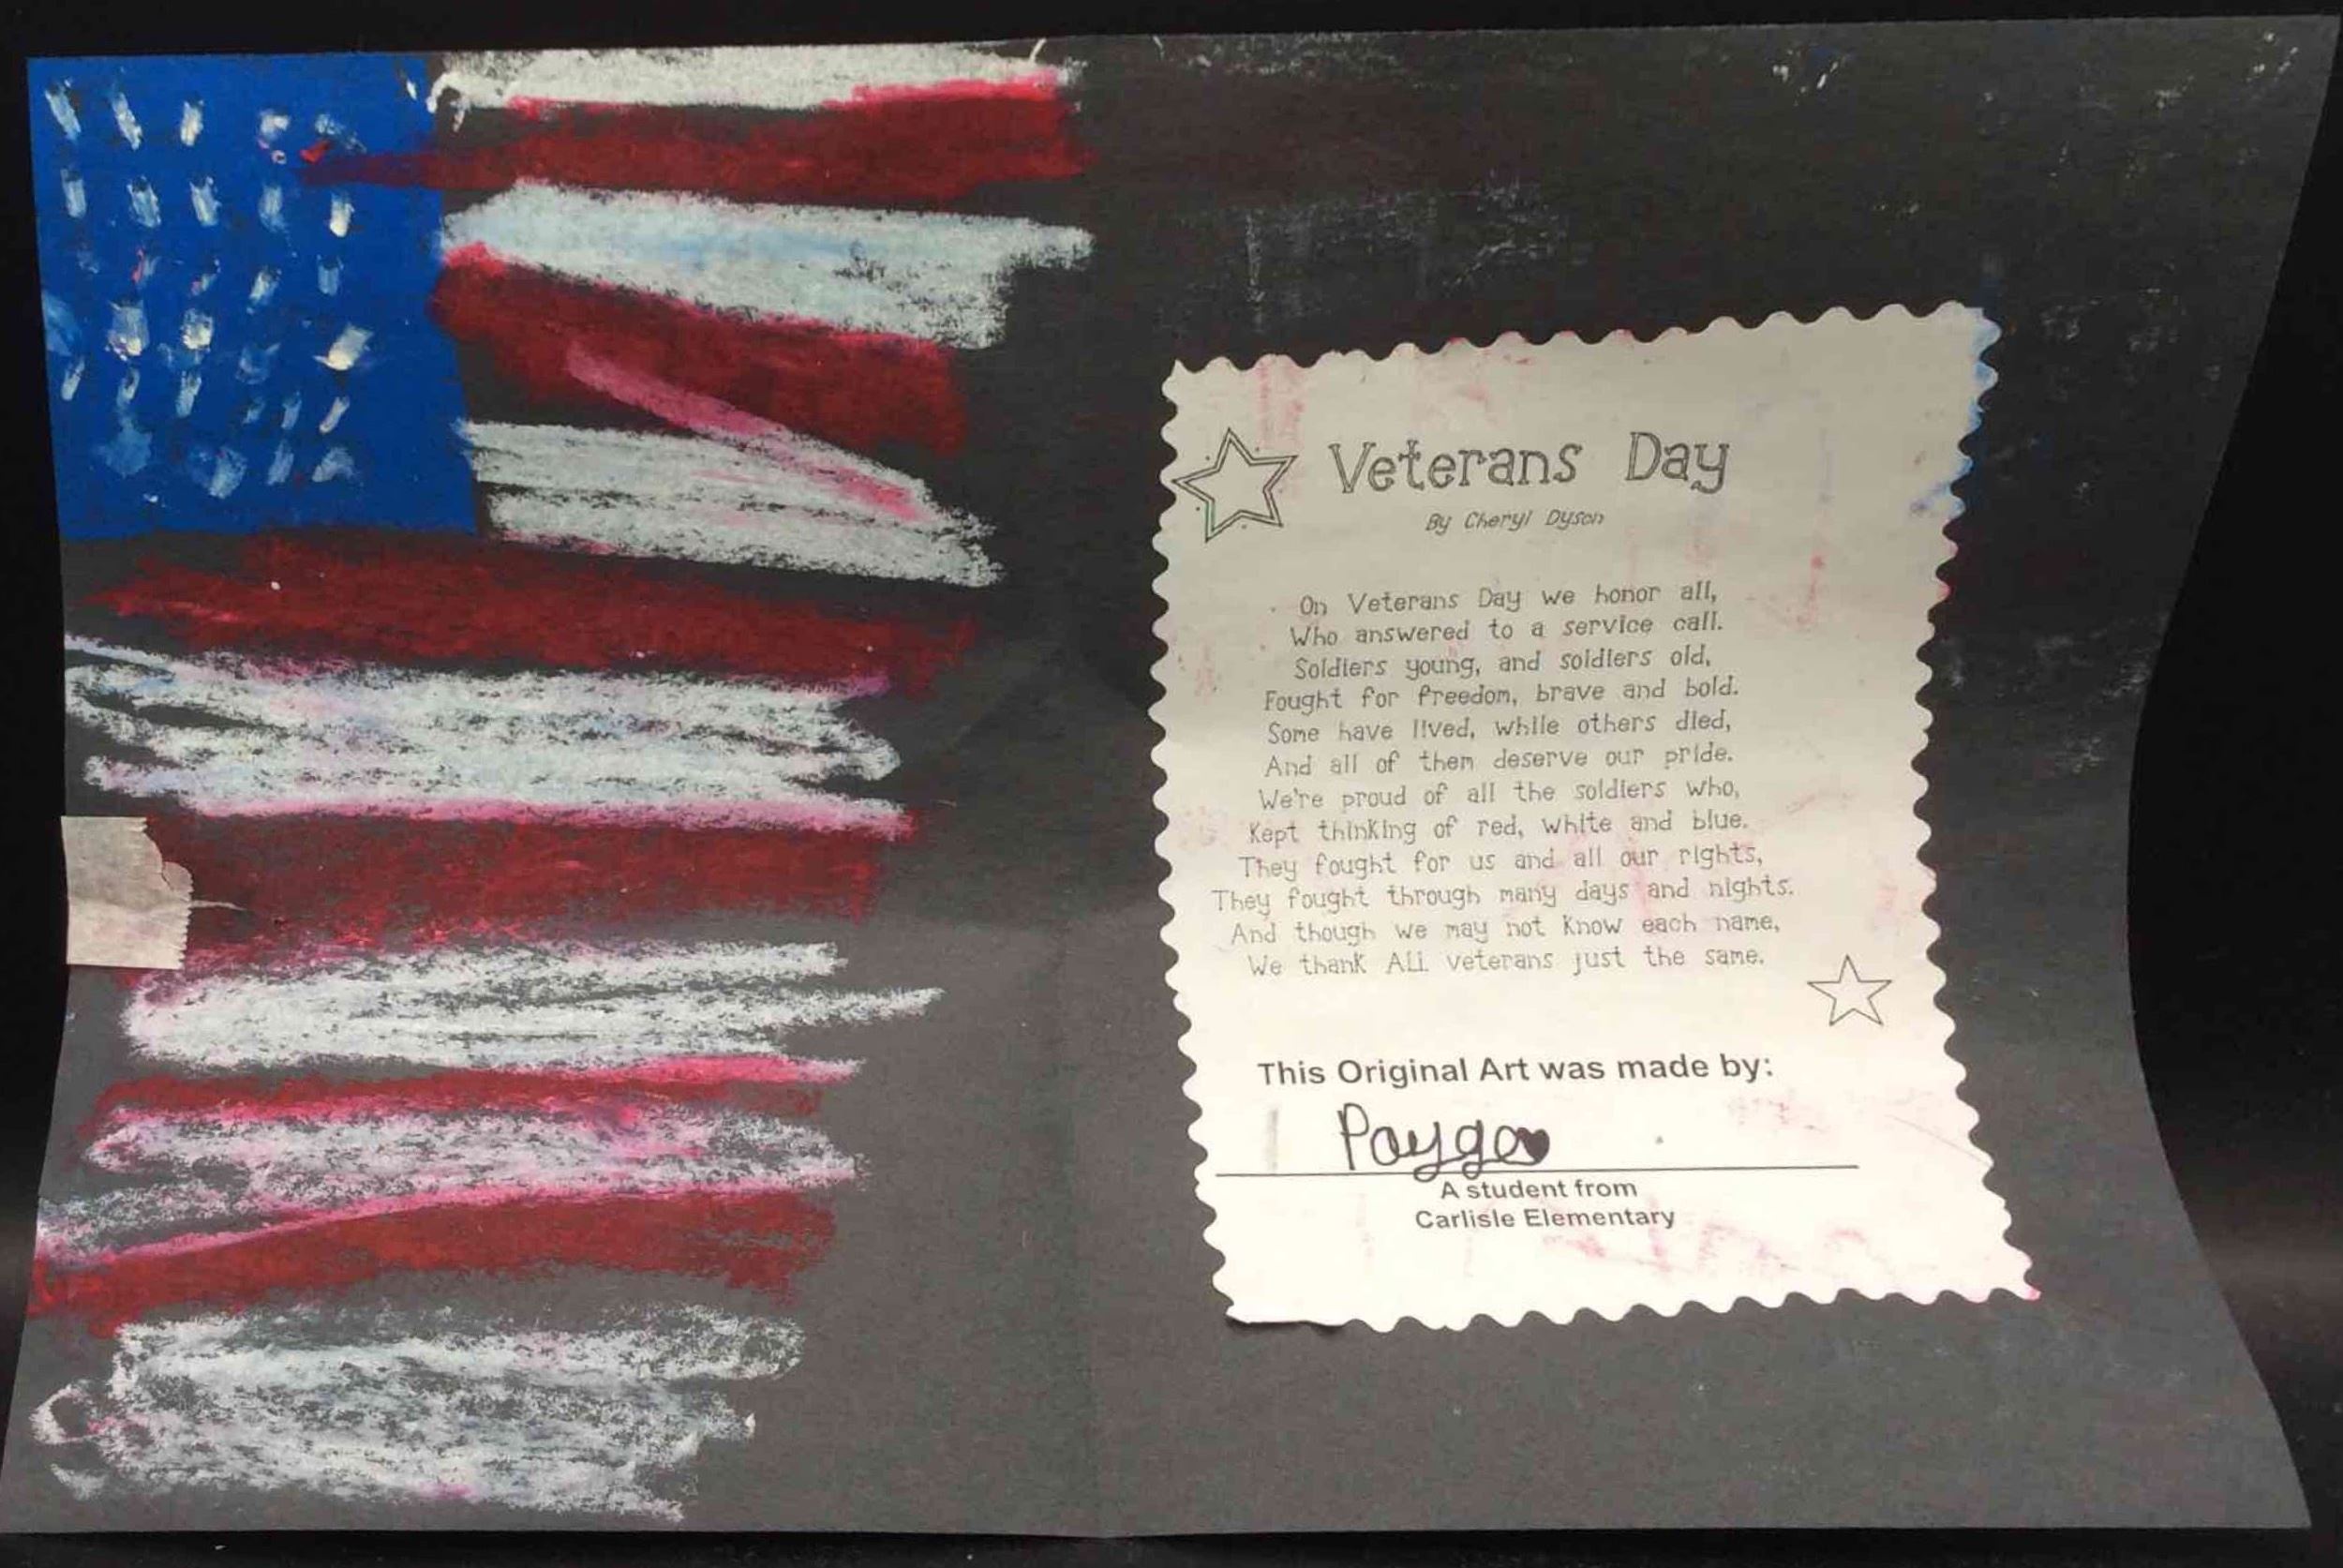 Veterans Day
By Cheryl Dyson
On Veterans Day we honor all,
Who answered to a service call.
Soldiers young, and soldiers old,
Fought for freedom, brave and bold.
Some have lived, while others died,
And all of them deserve our pride.
We're proud of all the soldiers who,
Kept thinking of red, white and blue.
They fought for us and all our rights,
They fought through many days and nights.
And though we may not know each name,
We thank ALL veterans just the same.
This Original Art was made by:
Payge
A student from
Carlisle Elementary